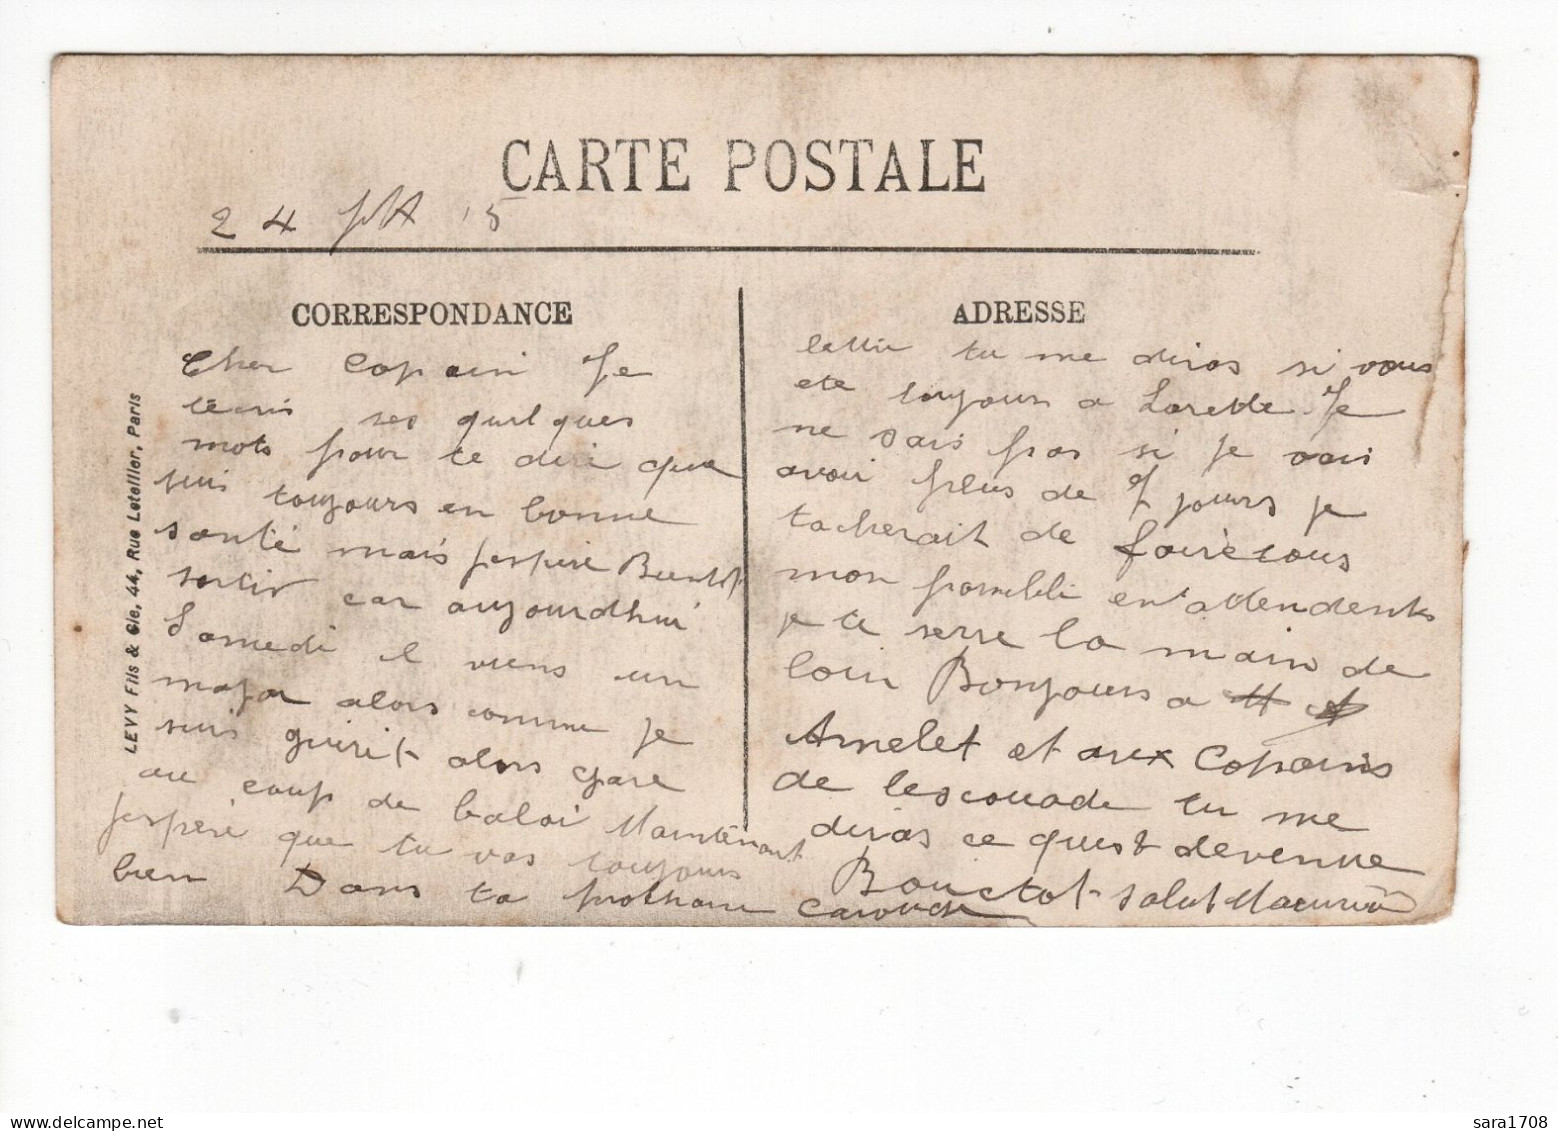 CARTE POSTALE
24 '15
CORRESPONDANCE
Cher Copain Je
técris ses quelques
mots pour te dire que
suis toujours en bonne
santé mais jespère Bientot
sortir car aujourdhui
Samedi il viens un
major alors comme je
suis guérit alors gare
au coup de balai Maintenant
jespère que tu vas toujours
bien Dans ta prochaine
ADRESSE
lettre tu me diras si vous
ete toujours a Lorette. Je
ne sais pas si je vais
avoir plus de 7 jours je
tacherait de faire tous
mon possible en attendents
je te serre la main de
loin Bonjours a
Amelet et aux Copains
de lescouade tu me
diras ce quest devenue
Bouctot salut
LEVY Fils & Cie, 44, Rue Letellier, Paris
sara1708